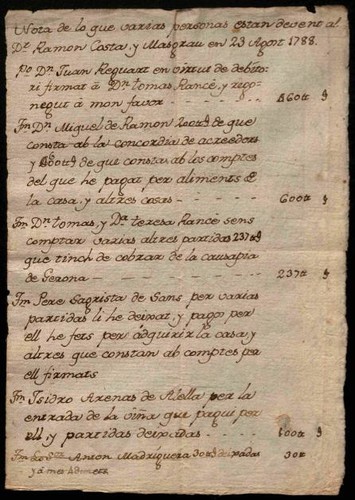 Nota de lo que varias personas estan devent al
Dr. Ramon Costa, y Masgrau en 23 Agost 1788.
Po Dn Juan Reguart en virtut de debito-
ri firmat â Dn tomas Rancé, y rego-
negut â mon favor -
Im Dn Miquel de Ramon de que
consta ab la concordia de acreedors
y de que consta ab los comptes
del que he pagat per aliments de
la casa, y altres cosas - 600tt
Im Dn tomas, y Da teresa Rancé sens
comptar varias altres partidas 237tt
que tinch de cobrar de la causapia
de Gerona - - - 237tt
Im Pere Sagrista de Sans per varias
partidas li he deixat, y pago per
ell he fets per adquirir la casa, y
altres que constan ab comptes per
ell firmats
Im Isidro Arenas de Alella per la
entrada de la viña que pagui per
ell, y partidas deixadas - 600tt
Im Anton Madriguera 30tt deixadas 30tt